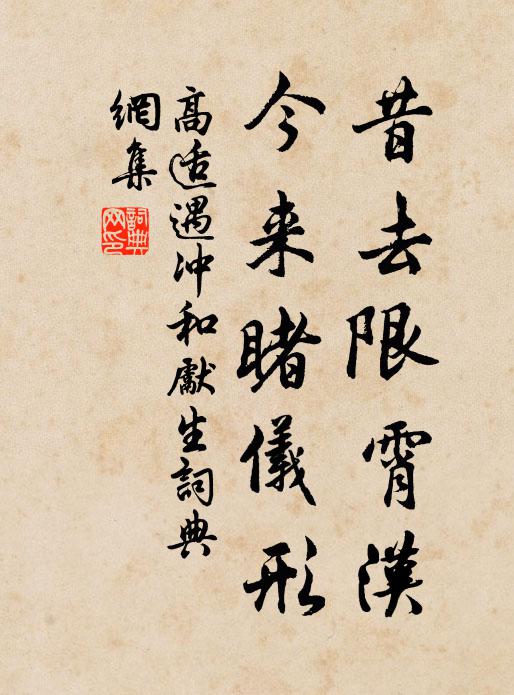 昔去限霄漢
今来睹儀形
高适遇冲和獻生詞典
網集
詞典网印